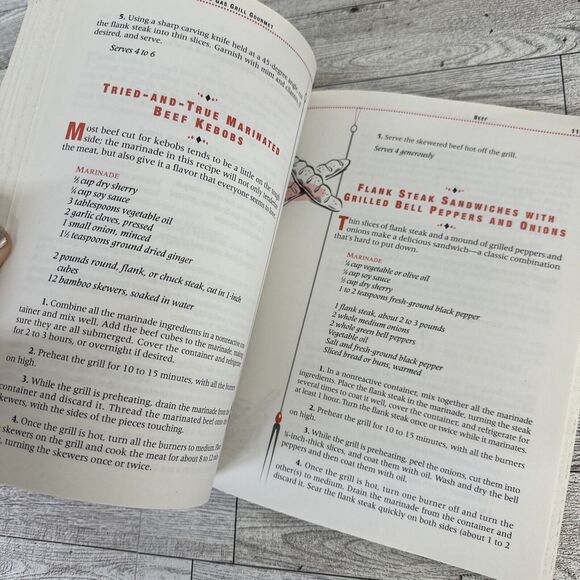 GAS GRILL GOURMET
5. Using a sharp carving knife held at a 45-degree angle,
the flank steak into thin slices. Garnish with mint and cilantro, if
desired, and serve.
Serves 4 to 6
TRIED-AND-TRUE MARINATED
BEEF KEBOBS
Most beef cut for kebobs tends to be a little on the tough
side; the marinade in this recipe will not only tenderize
the meat, but also give it a flavor that everyone seems to love.
MARINADE
½ cup dry sherry
¼ cup soy sauce
3 tablespoons vegetable oil
2 garlic cloves, pressed
1 small onion, minced
1½ teaspoons ground dried ginger
2 pounds round, flank, or chuck steak, cut in 1-inch
cubes
12 bamboo skewers, soaked in water
1. Combine all the marinade ingredients in a nonreactive con-
tainer and mix well. Add the beef cubes to the marinade, making
sure they are all submerged. Cover the container and refrigerate
for 2 to 3 hours, or overnight if desired.
2. Preheat the grill for 10 to 15 minutes, with all the burners
on high.
3. While the grill is preheating, drain the marinade from the
container and discard it. Thread the marinated beef onto the
skewers, with the sides of the pieces touching.
4. Once the grill is hot, turn all the burners to medium. Place
skewers on the grill and cook the meat for about 8 to 12
turning the skewers once or twice.
BEEF
5. Serve the skewered beef hot off the grill.
Serves 4 generously
FLANK STEAK SANDWICHES WITH
GRILLED BELL PEPPERS AND ONIONS
Thin slices of flank steak and a mound of grilled peppers and
onions make a delicious sandwich—a classic combination
that's hard to put down.
MARINADE
¼ cup vegetable or olive oil
¼ cup soy sauce
½ cup dry sherry
1 to 2 teaspoons fresh-ground black pepper
1 flank steak, about 2 to 3 pounds
2 whole medium onions
2 whole green bell peppers
Vegetable oil
Salt and fresh-ground black pepper
Sliced bread or buns, warmed
1. In a nonreactive container, mix together all the marinade
ingredients. Place the flank steak in the marinade, turning the steak
several times to coat it well, cover the container, and refrigerate for
at least 1 hour. Turn the flank steak once or twice while it marinates.
2. Preheat the grill for 10 to 15 minutes, with all the burners
on high.
3. While the grill is preheating, peel the onions, cut them into
-inch-thick slices, and coat them with oil. Wash and dry the bell
peppers and then coat them with oil.
4. Once the grill is hot, turn one burner off and turn the
other(s) to medium. Drain the marinade from the container and
discard it. Sear the flank steak quickly on both sides (about 1 to 2